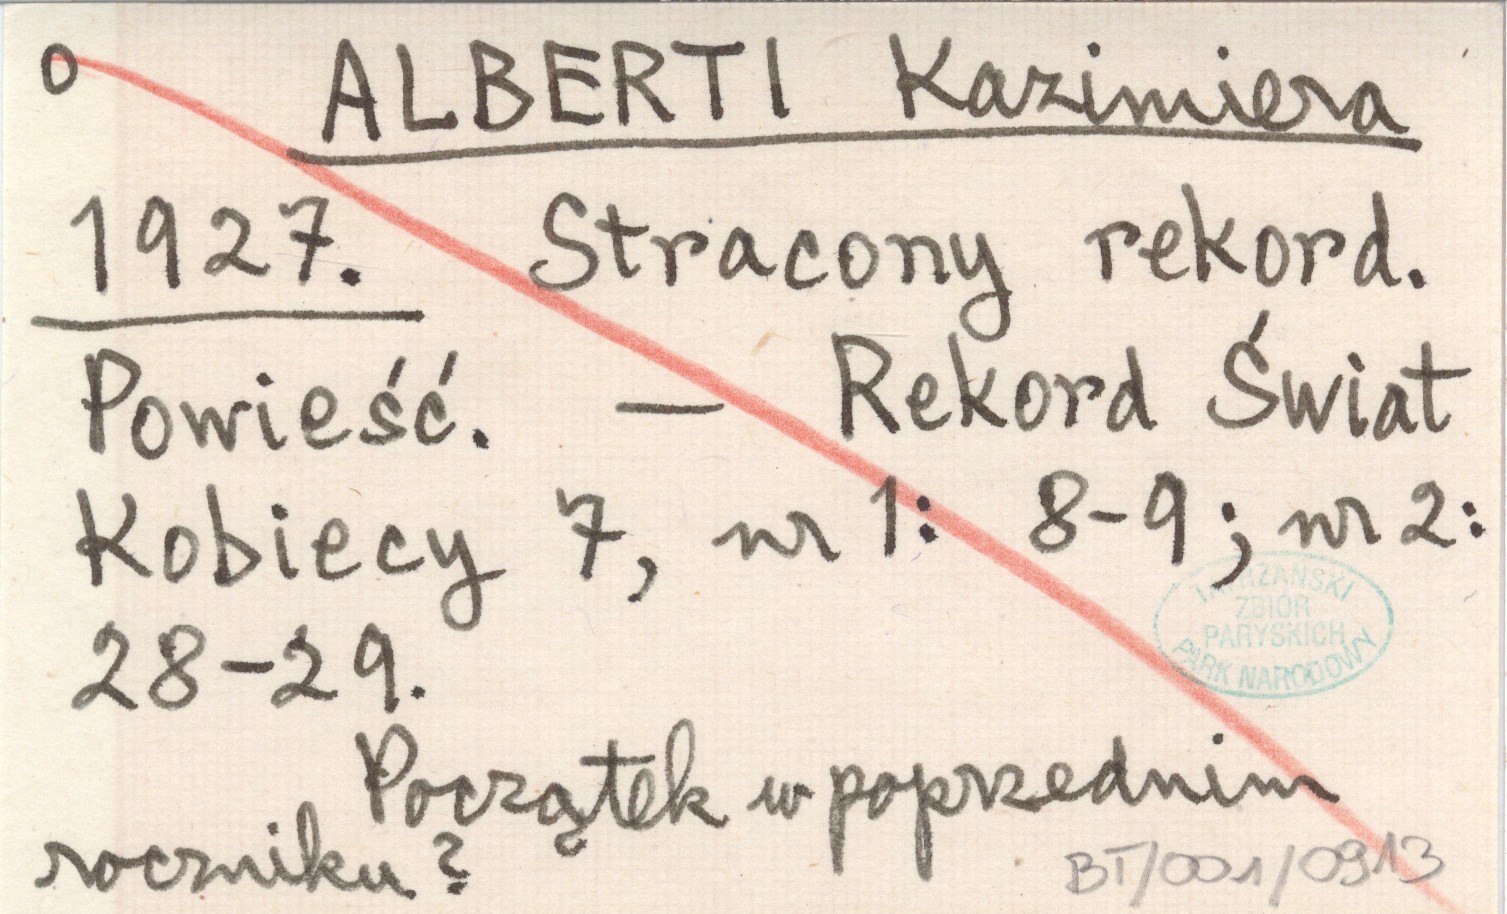 o ALBERTI Kazimiera
1927. Stracony rekord.
Powieść. — Rekord Świat
Kobiecy 7, nr 1: 8-9; nr 2:
28-29.
Początek w poprzednim
roczniku?
TATRZAŃSKI
ZBIÓR
PARYSKICH
PARK NARODOWY
BT/001/0913